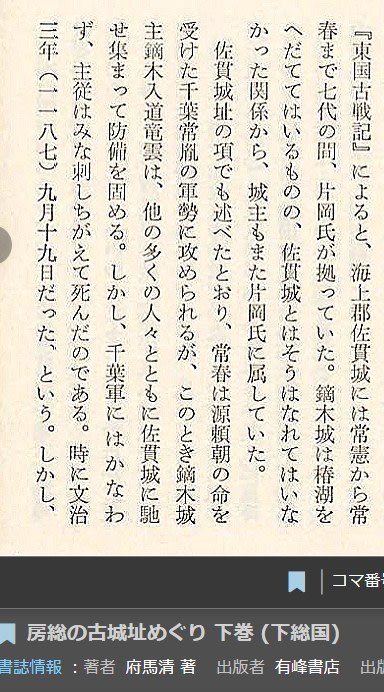 『東国古戦記』によると、海上郡佐貫城には常憲から常
春まで七代の間、片岡氏が拠っていた。鏑木城は椿湖を
へだててはいるものの、佐貫城とはそうはなれてはいな
かった関係から、城主もまた片岡氏に属していた。
佐貫城址の項でも述べたとおり、常春は源頼朝の命を
受けた千葉常胤の軍勢に攻められるが、このとき鏑木城
主鏑木入道竜雲は、他の多くの人々とともに佐貫城に馳
せ集まって防備を固める。しかし、千葉軍にはかなわ
ず、主従はみな刺しちがえて死んだのである。時に文治
三年（一一八七）九月十九日だった、という。しかし、
コマ番
房総の古城址めぐり 下巻 (下総国)
書誌情報 ：著者 府馬清 著 出版者 有峰書店 出版